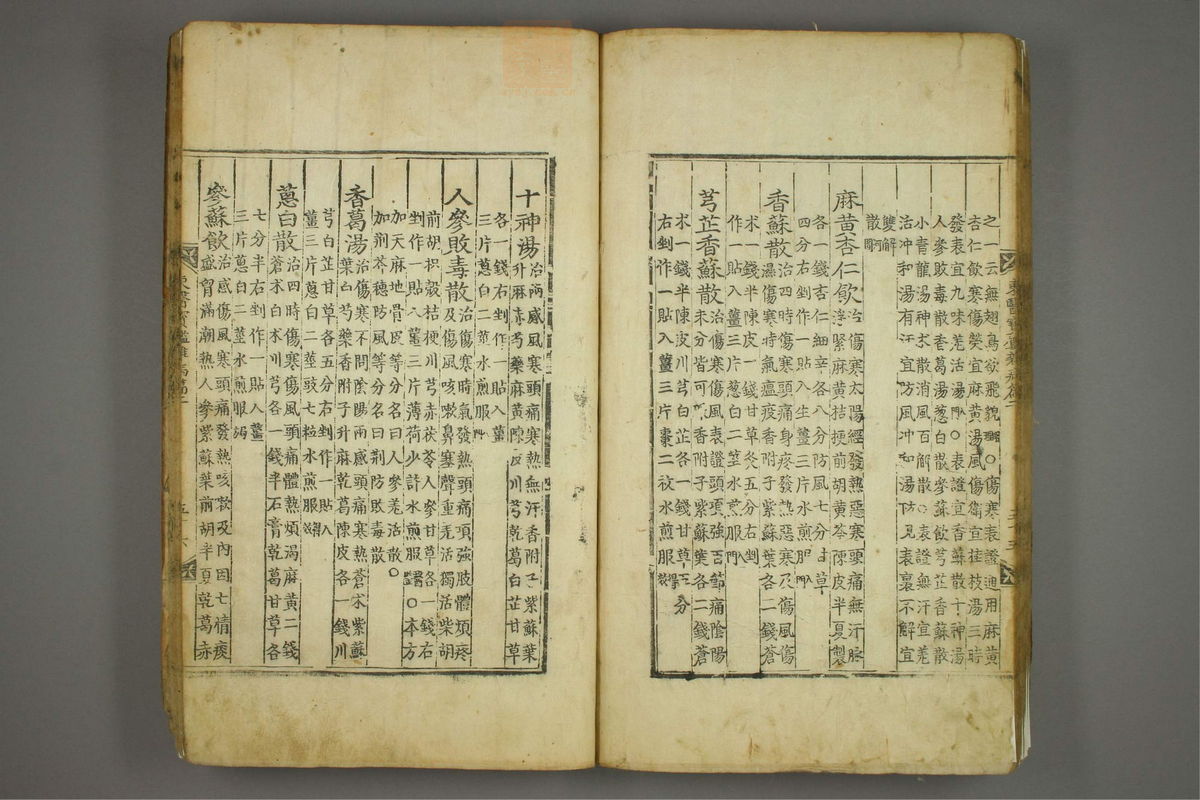 之一云無翅鳥欲飛貌○傷寒表證通用麻黃
杏仁飮寒傷榮宜麻黃湯風傷衛宜桂枝湯三時
發表宜九味羌活湯○表證宜香蘇散十神湯
人參敗毒散香葛湯葱白散參蘇飮芎芷香蘇散
小靑龍湯神朮散消風百解散○表證無汗宜羌
活冲和湯有汗宜防風冲和湯 見表裏不解宜
雙解
散
麻黃杏仁飮治傷寒太陽經發熱惡寒頭痛無汗脉
浮緊麻黃桔梗前胡黃芩陳皮半夏製
各一錢杏仁細辛各八分防風七分甘草
四分右剉作一貼入生薑三片水煎服
香蘇散治四時傷寒頭痛身疼發熱惡寒及傷風傷
濕傷寒時氣瘟疫香附子紫蘇葉各二錢蒼
朮一錢半陳皮一錢甘草灸五分右剉
作一貼入薑三片葱白二莖水煎服
芎芷香蘇散治傷寒傷風表證頭項強百節痛陰陽
未分皆可服香附子紫蘇葉各二錢蒼
朮一錢半陳皮川芎白芷各一錢甘草五分
右剉作一貼入薑三片棗二枚水煎服
十神湯治兩感風寒頭痛寒熱無汗香附子紫蘇葉
升麻赤芍藥麻黃陳皮川芎乾葛白芷甘草
各一錢右剉作一貼入薑
三片葱白二莖水煎服
人參敗毒散治傷寒時氣發熱頭痛項強肢體煩疼
及傷風咳嗽鼻塞聲重羌活獨活柴胡
前胡枳殼桔梗川芎赤茯苓人參甘草各一錢右
剉作一貼入薑三片薄荷少許水煎服○本方
加天麻地骨皮等分名曰人參羌活散○
加荊芥穗防風等分名曰荊防敗毒散
香葛湯治傷寒不問陰陽兩感頭痛寒熱蒼朮紫蘇
葉白芍藥香附子升麻乾葛陳皮各一錢川
芎白芷甘草各五分右剉作一貼入
薑三片葱白二莖豉七粒水煎服
葱白散治四時傷寒傷風頭痛體熱煩渴麻黃二錢
蒼朮白朮川芎各一錢半石膏乾葛甘草各
七分半右剉作一貼入薑
三片葱白二莖水煎服
參蘇飮治感傷風寒頭痛發熱咳嗽及內因七情痰
盛胷滿潮熱人參紫蘇葉前胡半夏乾葛赤
東醫寶鑑雜病篇二
五十六